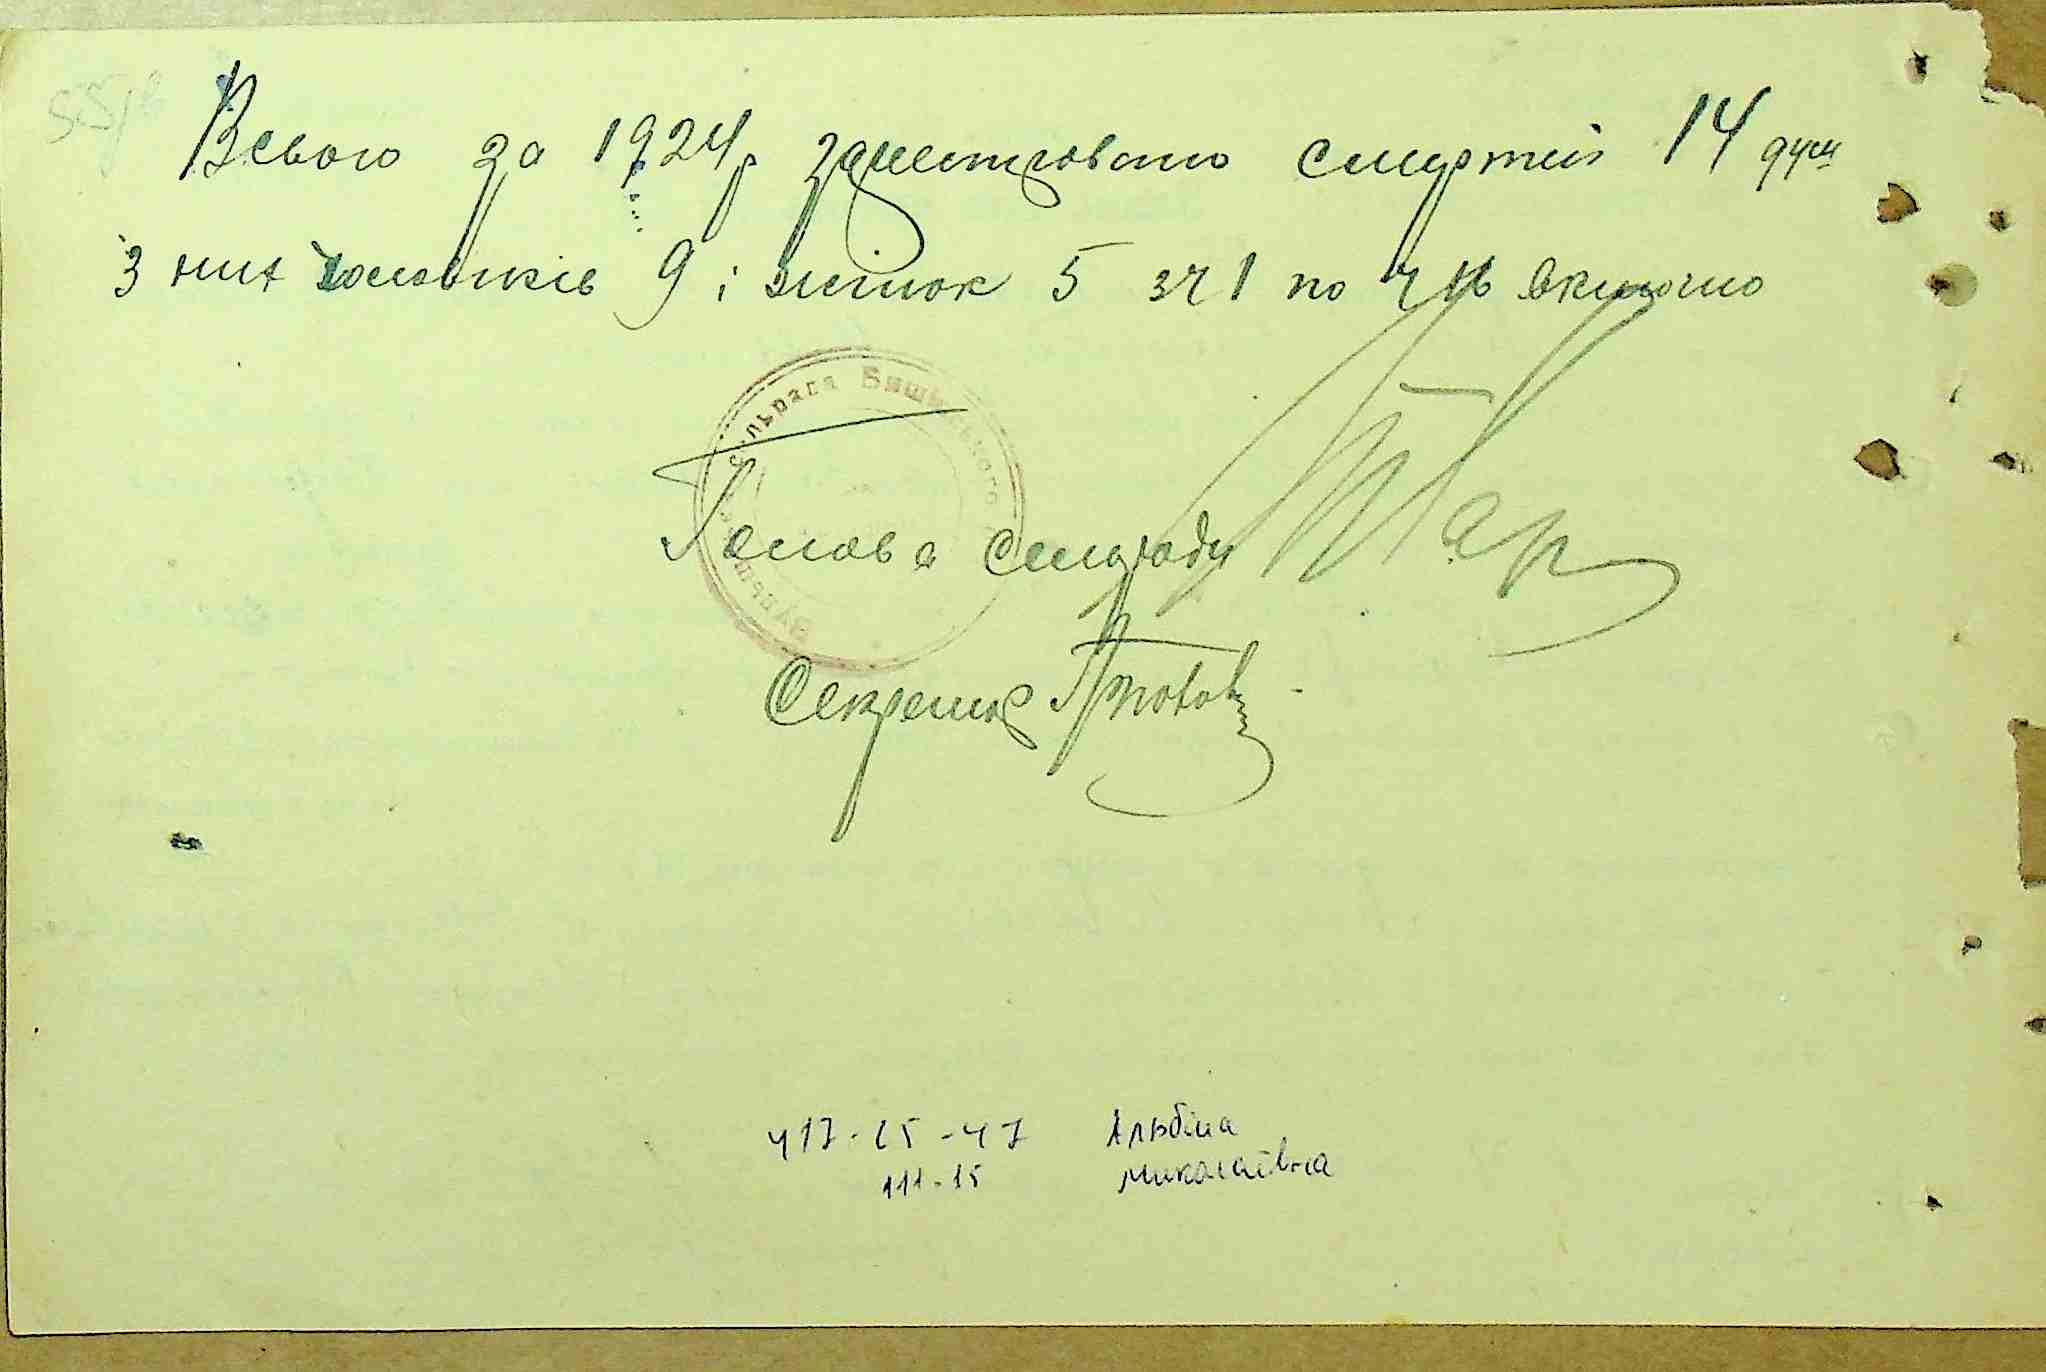 Всього за 1924 р зареєстровано смертей 14 душ
з них чоловіків 9 і жінок 5 з № 1 по № 14 включно
сільрада
Голова сільради
Секретар
417-25-47 Альбіна
111-15 Миколаївна